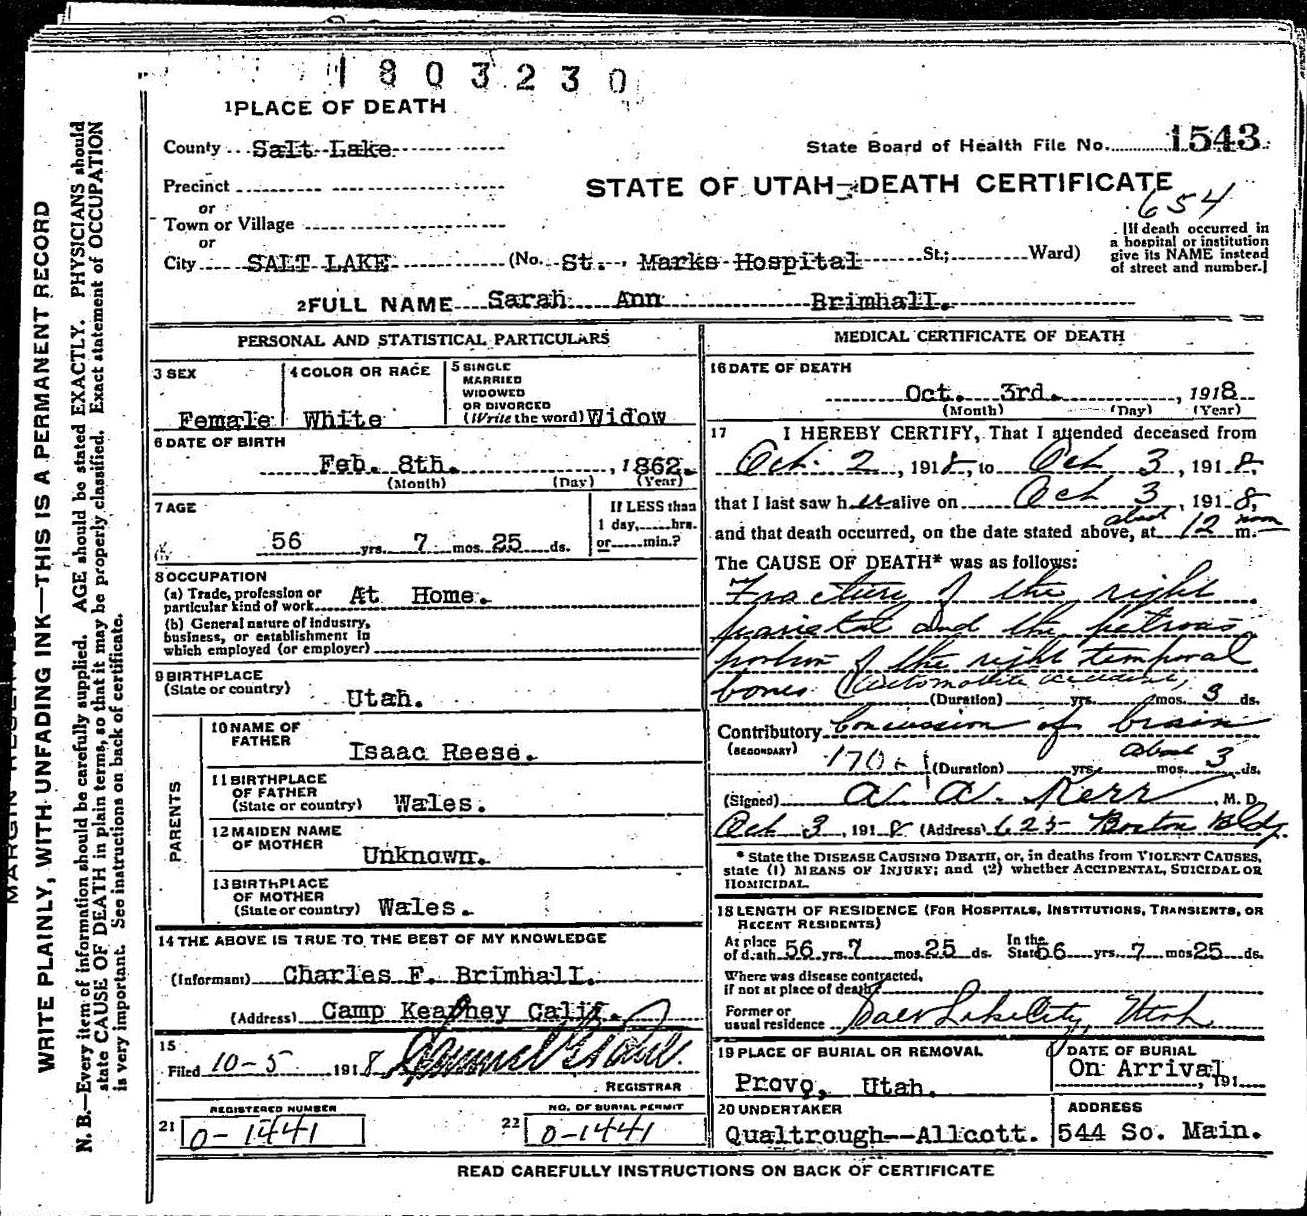 1803230
1 PLACE OF DEATH
County Salt Lake
State Board of Health File No. 1543
Precinct
STATE OF UTAH—DEATH CERTIFICATE
or
654
Town or Village
or
City SALT LAKE (No. St. Marks Hospital St.; Ward)
[If death occurred in
a hospital or institution
give its NAME instead
of street and number.]
2 FULL NAME Sarah Ann Brimhall.
PERSONAL AND STATISTICAL PARTICULARS
3 SEX
Female
4 COLOR OR RACE
White
5 SINGLE
MARRIED
WIDOWED
OR DIVORCED
(Write the word) Widow
6 DATE OF BIRTH
Feb. 8th. , 1862.
(Month) (Day) (Year)
7 AGE
56 yrs. 7 mos. 25 ds.
If LESS than
1 day, hrs.
or min.?
8 OCCUPATION
(a) Trade, profession or
particular kind of work At Home.
(b) General nature of industry,
business, or establishment in
which employed (or employer)
9 BIRTHPLACE
(State or country)
Utah.
PARENTS
10 NAME OF
FATHER
Isaac Reese.
11 BIRTHPLACE
OF FATHER
(State or country) Wales.
12 MAIDEN NAME
OF MOTHER
Unknown.
13 BIRTHPLACE
OF MOTHER
(State or country) Wales.
14 THE ABOVE IS TRUE TO THE BEST OF MY KNOWLEDGE
(Informant) Charles F. Brimhall.
(Address) Camp Kearney Calif.
15
Filed 10-5 1918
REGISTRAR
REGISTERED NUMBER
21 0-1441
NO. OF BURIAL PERMIT
22 0-1441
MEDICAL CERTIFICATE OF DEATH
16 DATE OF DEATH
Oct. 3rd. , 1918
(Month) (Day) (Year)
17 I HEREBY CERTIFY, That I attended deceased from
Oct. 2, 1918, to Oct 3, 1918,
that I last saw her alive on Oct 3, 1918,
and that death occurred, on the date stated above, at about 12 noon m.
The CAUSE OF DEATH* was as follows:
Fracture of the right
parietal and the petrous
portion of the right temporal
bones (Automobile accident)
(Duration) yrs. mos. 3 ds.
Contributory Concussion of brain
(SECONDARY)
170 (Duration) yrs. mos. about 3 ds.
(Signed) A. A. Kerr, M. D.
Oct 3, 1918 (Address) 625 Boston Bldg.
* State the DISEASE CAUSING DEATH, or, in deaths from VIOLENT CAUSES,
state (1) MEANS OF INJURY; and (2) whether ACCIDENTAL, SUICIDAL OR
HOMICIDAL.
18 LENGTH OF RESIDENCE (FOR HOSPITALS, INSTITUTIONS, TRANSIENTS, OR
RECENT RESIDENTS)
At place
of death 56 yrs. 7 mos. 25 ds. In the
State 56 yrs. 7 mos 25 ds.
Where was disease contracted,
if not at place of death?
Former or
usual residence Salt Lake City, Utah
19 PLACE OF BURIAL OR REMOVAL
Provo, Utah.
DATE OF BURIAL
On Arrival , 191
20 UNDERTAKER
Qualtrough--Allcott.
ADDRESS
544 So. Main.
READ CAREFULLY INSTRUCTIONS ON BACK OF CERTIFICATE
WRITE PLAINLY, WITH UNFADING INK—THIS IS A PERMANENT RECORD
N. B.—Every item of information should be carefully supplied. AGE should be stated EXACTLY. PHYSICIANS should
state CAUSE OF DEATH in plain terms, so that it may be properly classified. Exact statement of OCCUPATION
is very important. See instructions on back of certificate.